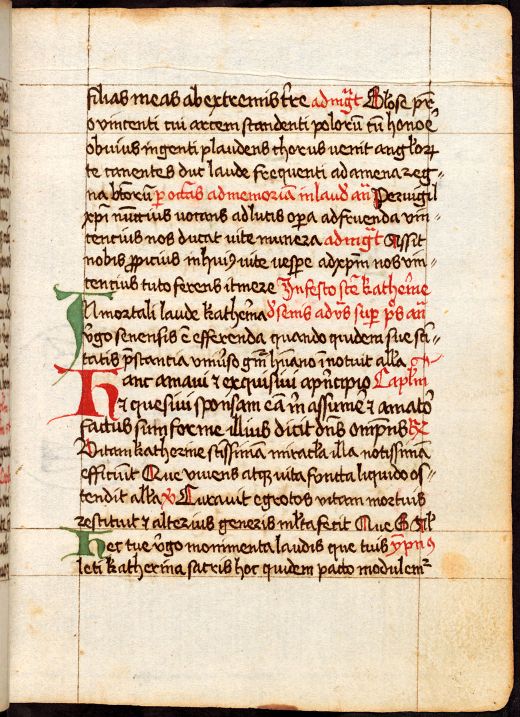 filias meas ab extremis t̄re ad mg̃t Glose pr̄
o vincenti cui artem scandenti polorū tm̄ honoē
obuius ingenti plaudens chorus venit anglor̄
te canentes duc laude frequenti ad amena reg
na btorū p octas ad memoriam in laud añ Peruigil
xp̄i nuncius vocans ad lucis opa ad fruenda vin
cencius nos ducat vite munera ad mg̃t Assit
nobis ꝓpicius in huiꝰ vite vespe ad xp̄m nos vin
cencius tuto ferens itinere In festo scē katherīe
Inmortali laude katherina de senis ad vs̄ sup ps̄ añ
v̊go senensis ē efferenda quando quidem sue scī
tatis p̄stantia vniūso gn̄i hūano īnotuit alla
Hanc amaui ⁊ exquisiui a pn̄cipio Caplm̄
⁊ quesiui sponsam eā m̄ assumē ⁊ amator̄
factus sum forme illius dicit dn̄s omp̄ns ℟
Vitam katherine sc̄issimam miracla illa notissimam
efficiūt Que viuens atqȝ vita functa liquido os
tendit alla ℣ Curauit egrotos vitam mortuis
restituit ⁊ alterius generis ml̄ta fecit Que G
Hec tue v̊go monimenta laudis que tuis ym̄pnꝰ
leti katherina sacris hoc quidem pacto modulem̄